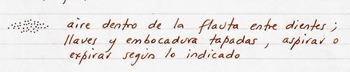 aire dentro de la flauta entre dientes ;
llaves y embocadura tapadas , aspirar o
expirar según lo indicado